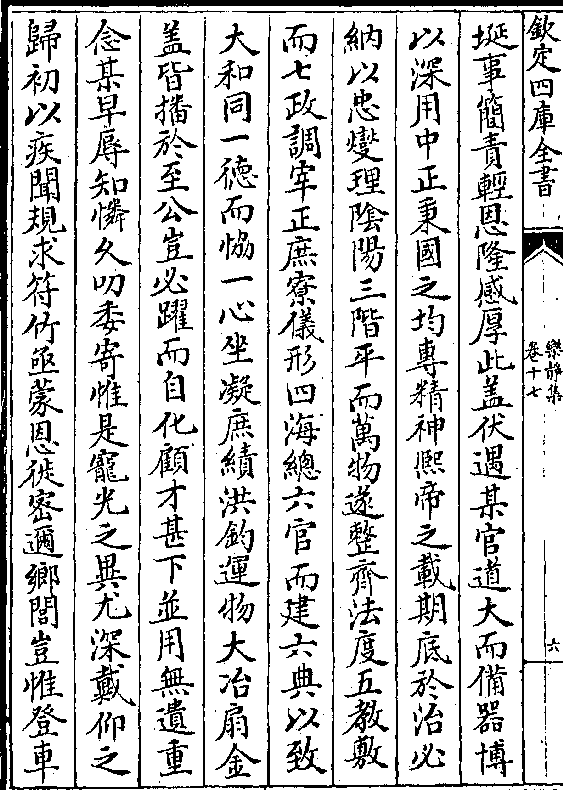 欽定四庫全書
樂静集
卷十七
六
埏事簡責輕恩隆感厚此盖伏遇某官道大而備器博
以深用中正秉國之均專精神熈帝之載期底於治必
納以忠爕理陰陽三階平而萬物遂整齊法度五教敷
而七政調宰正庶寮儀形四海總六官而建六典以致
大和同一德而恊一心坐凝庶績洪鈞運物大冶扇金
盖皆播於至公豈必躍而自化顧才甚下並用無遺重
念某早辱知憐久叨委寄惟是寵光之異尤深戴仰之
歸初以疾聞規求符竹亟蒙恩徙密邇鄉閭豈惟登車